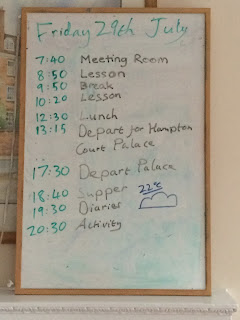 Friday 29th July
7:40 Meeting Room
8:50 Lesson
9:50 Break
10:20 Lesson
12:30 Lunch
13:15 Depart for Hampton
Court Palace
...
17:30 Depart Palace
18:40 Supper 22°C
19:30 Diaries
20:30 Activity